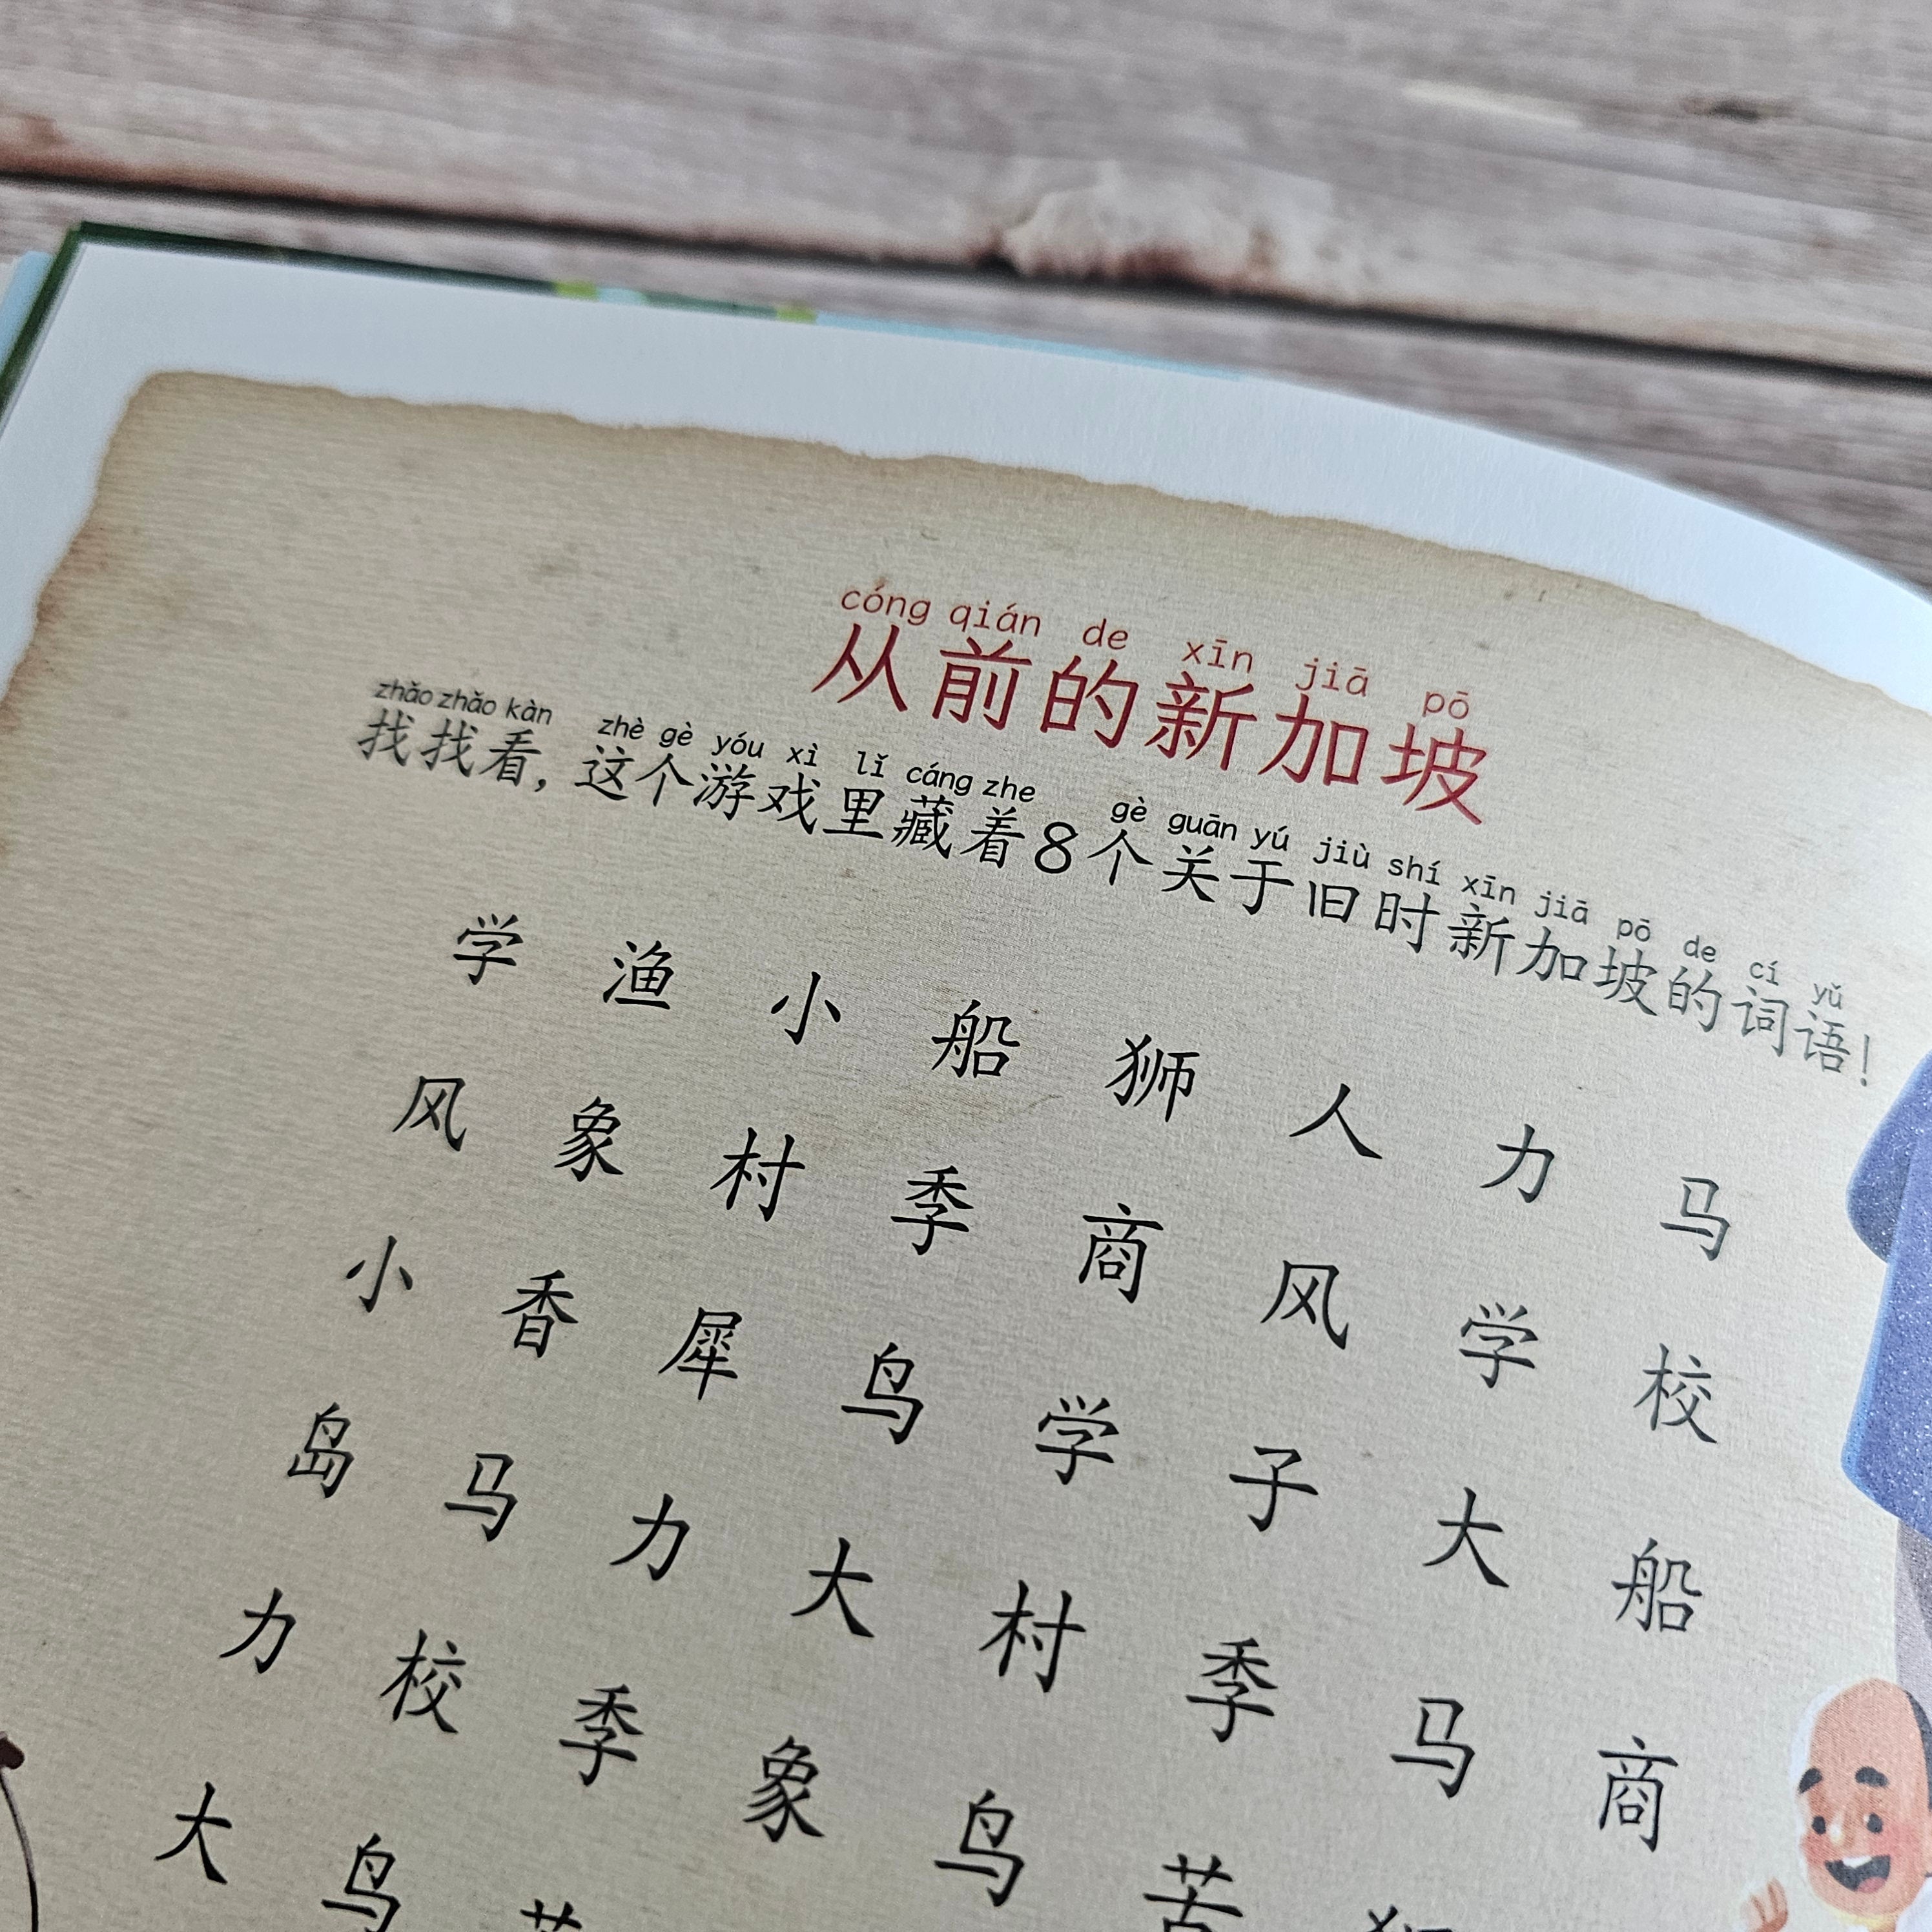 cóng qián de xīn jiā pō
从前的新加坡
zhǎo zhǎo kàn zhè gè yóu xì lǐ cáng zhe gè guān yú jiù shí xīn jiā pō de cí yǔ
找找看，这个游戏里藏着8个关于旧时新加坡的词语！
学 渔 小 船 狮 人 力 马
风 象 村 季 商 风 学 校
小 香 犀 鸟 学 子 大 船
岛 马 力 大 村 季 马 商
力 校 季 象 鸟 苦 狮
大 鸟 苦